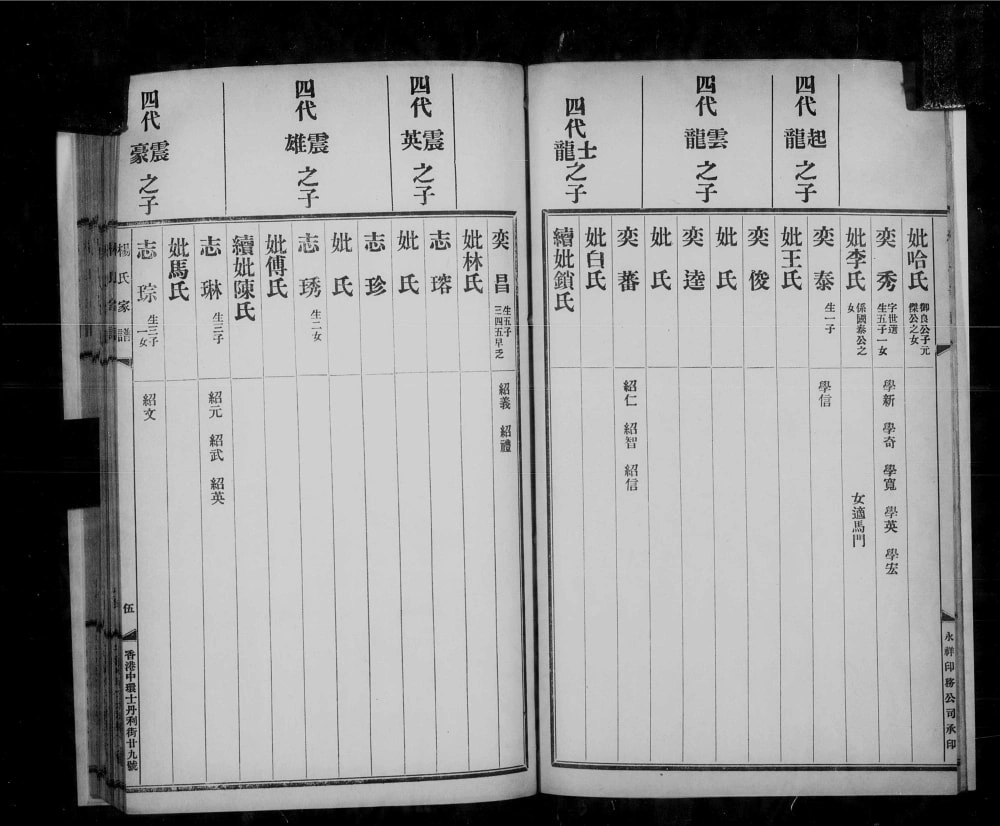 四代起龍之子
四代雲龍之子
四代士龍之子
妣哈氏 御良公子元傑公之女
奕秀 字世選生五子一女 學新 學奇 學寬 學英 學宏
妣李氏 係國泰公之女 女適馬門
奕泰 生一子 學信
妣王氏
奕俊
妣氏
奕逵
妣氏
奕蕃 紹仁 紹智 紹信
妣白氏
續妣鎖氏
永祥印務公司承印
四代震英之子
四代震雄之子
四代震豪之子
奕昌 生五子三四五早乏 紹義 紹禮
妣林氏
志瑢
妣氏
志珍
妣氏
志琇 生二女
妣傅氏
續妣陳氏
志琳 生三子 紹元 紹武 紹英
妣馬氏
志琮 生三子一女 紹文
楊氏家譜
伍
香港中環士丹利街廿九號